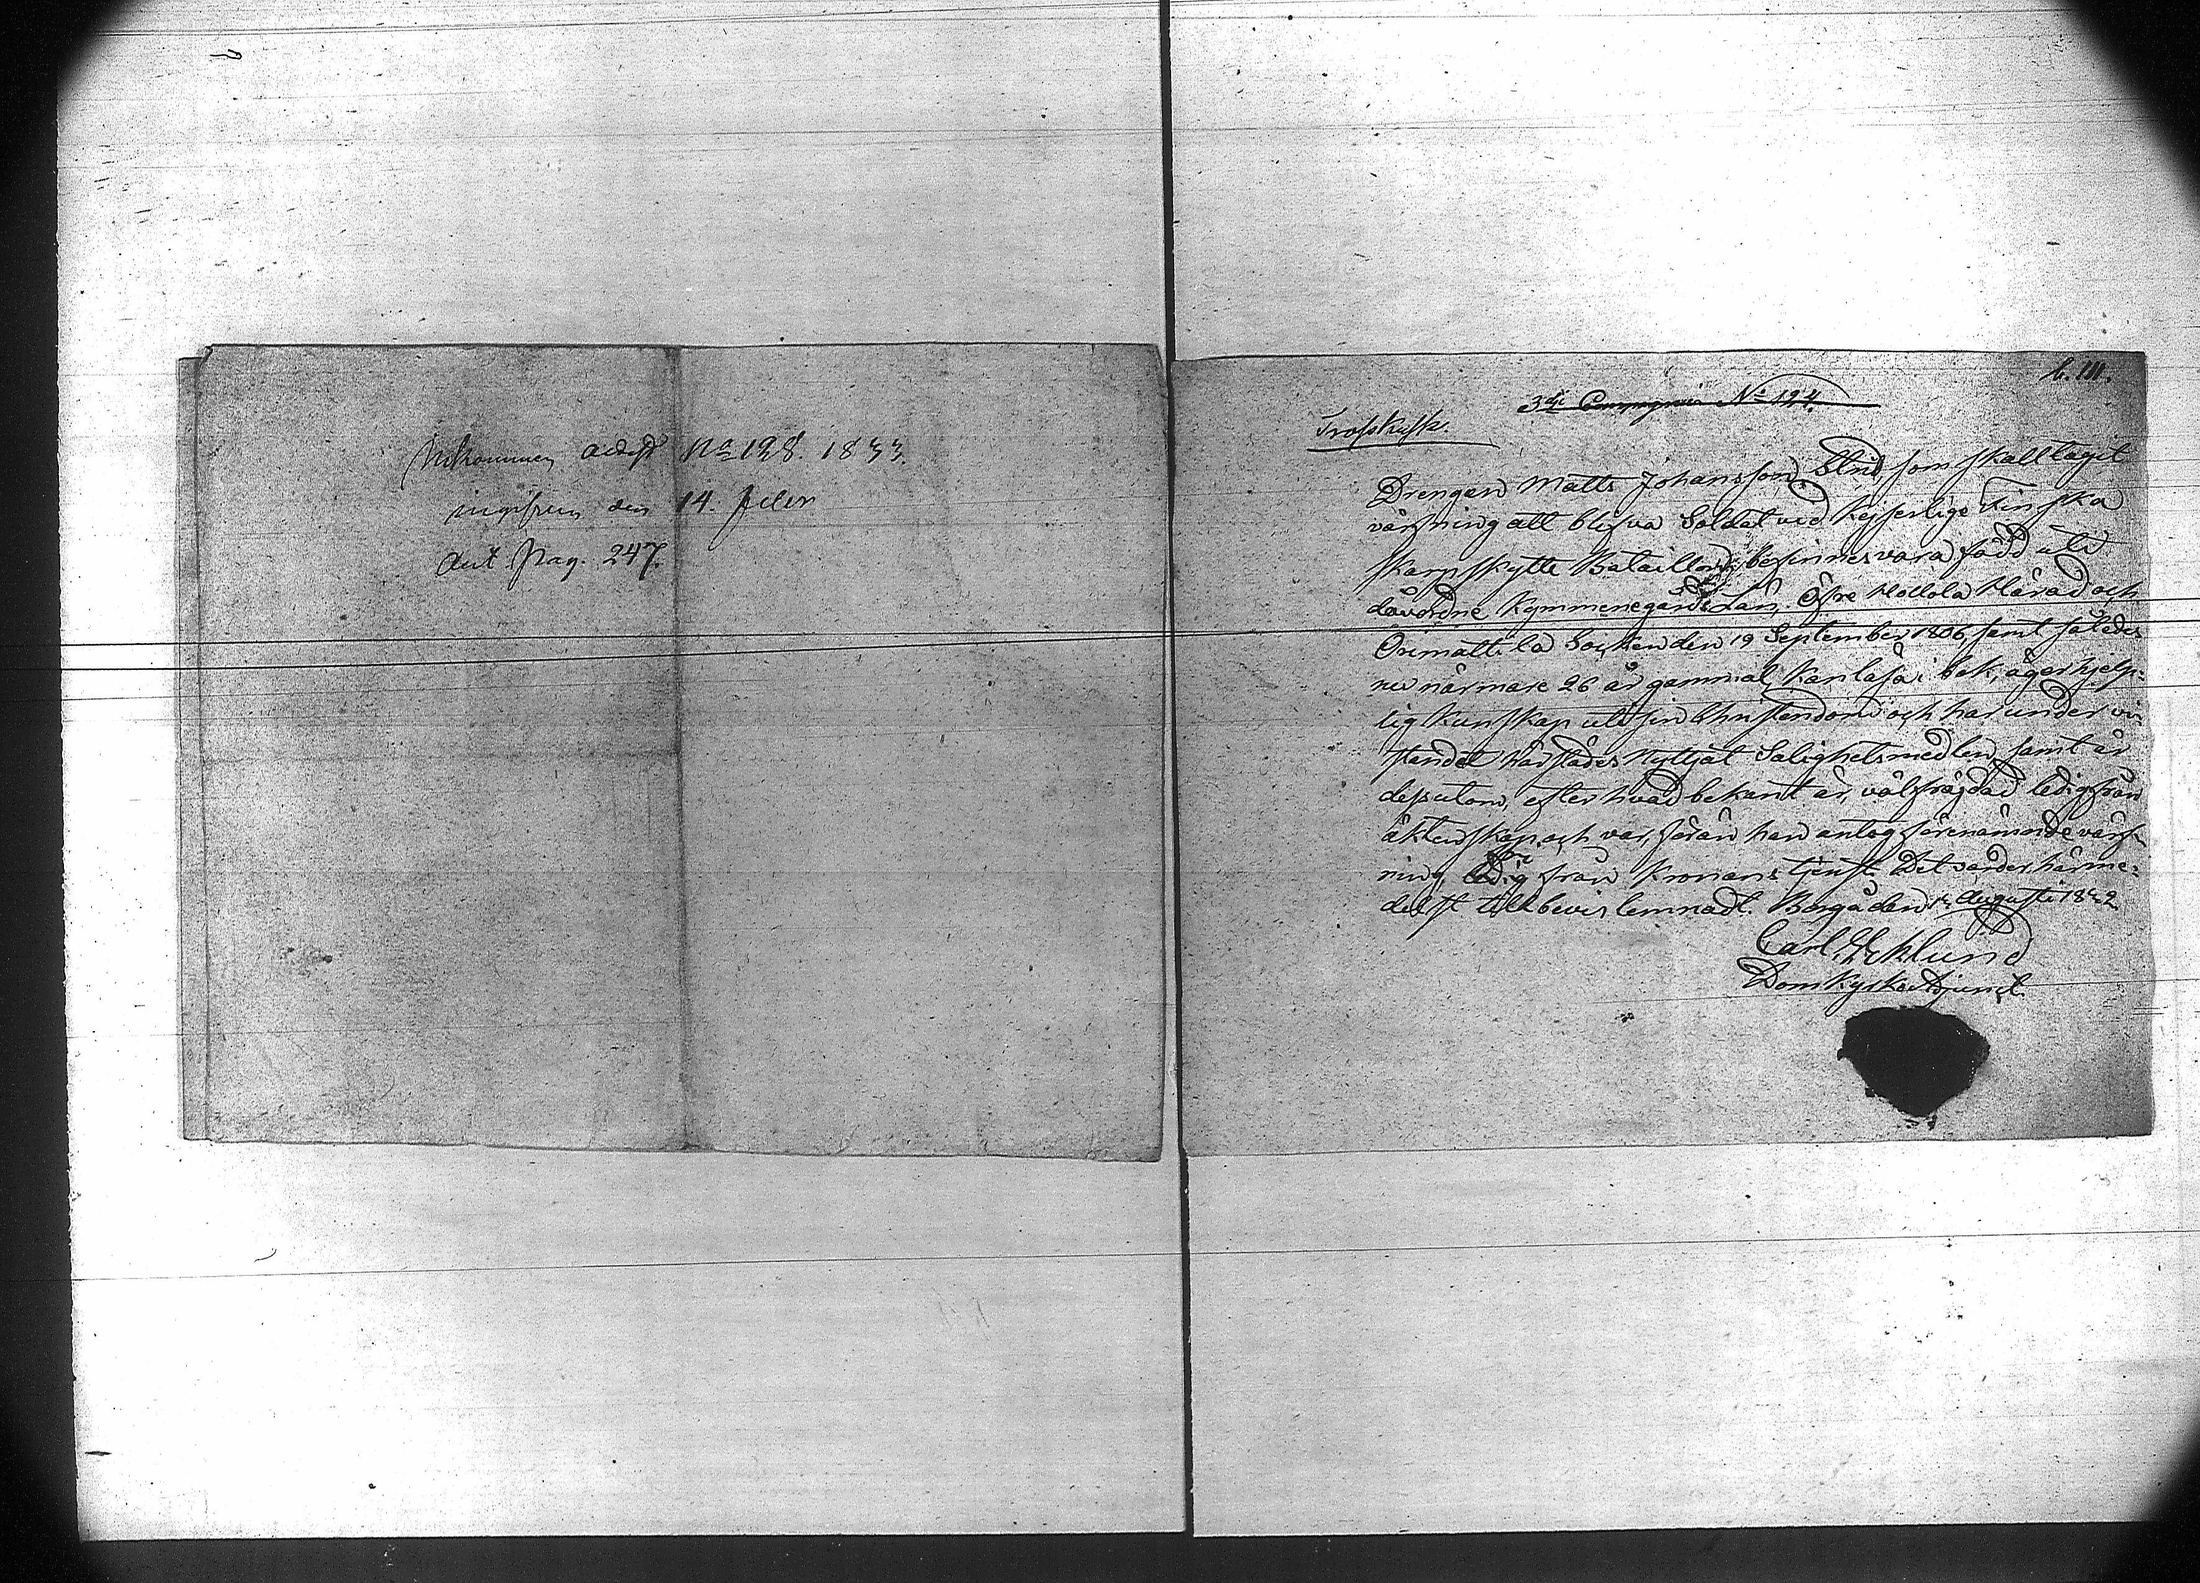 Inkommen attest No 128. 1833.
den 14. Febr
Ant. Pag. 247.
b. 111.
3dje Compagnie No 124.
Trosskusk.
Drengen Matts Johansson Strid, som skall tagit
värfning att blifva Soldat vid Kejserlige Finska
Skarpskytte Bataillon, befinnes vara född uti
dåvordne Kymmenegårds Län. Öfre Hollola Härad och
Orimattila Socken den 19 September 1806, samt således
nu närmare 26 år gammal, kan läsa i bok, äger hjelp-
lig kunskap uti sin Christendom och har under vi-
standet härstädes nyttjat Salighetsmedlen, samt är
dessutom, efter hvad bekant är, välfräjdad ledig från
äktenskap och var, förän han antog förenämnde värf-
ning, ledig från Kronans tjenst. Det varder härme-
delst till bevis lemnadt. Borgå den Augusti 1832
Carl Eklund
Domkyrko Adjunct.